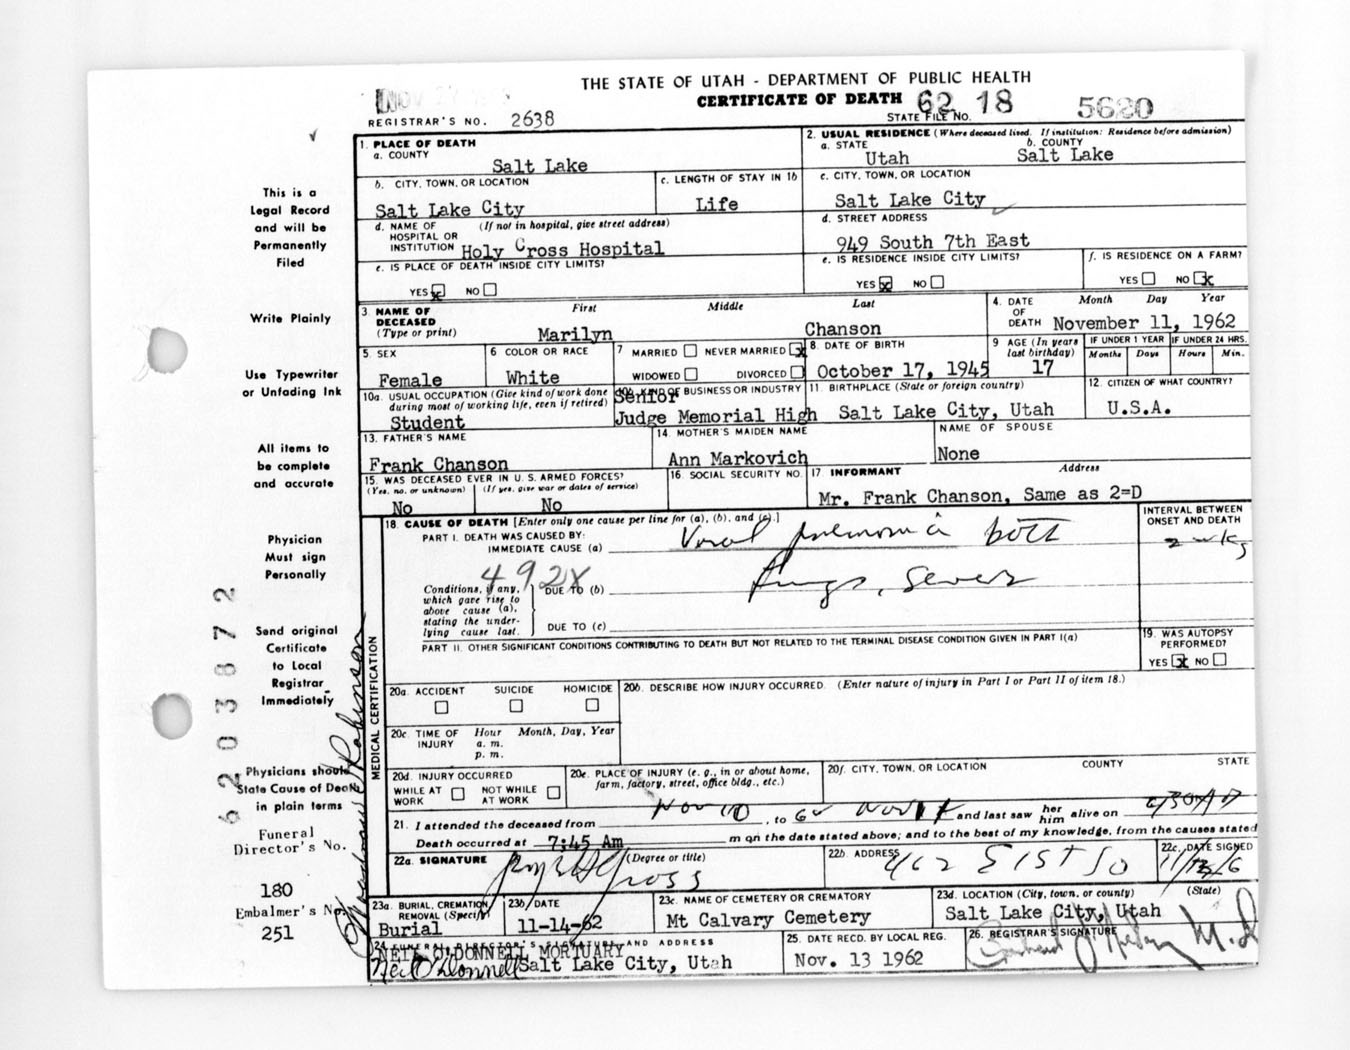 THE STATE OF UTAH - DEPARTMENT OF PUBLIC HEALTH
CERTIFICATE OF DEATH 62 18 5620
REGISTRAR'S NO. 2638 STATE FILE NO.
This is a Legal Record and will be Permanently Filed
Write Plainly
Use Typewriter or Unfading Ink
All items to be complete and accurate
Physician Must sign Personally
Send original Certificate to Local Registrar Immediately
Physicians should State Cause of Death in plain terms
Funeral Director's No.
180
Embalmer's No.
251
62 03872
1. PLACE OF DEATH
a. COUNTY Salt Lake
2. USUAL RESIDENCE (Where deceased lived. If institution: Residence before admission)
a. STATE Utah b. COUNTY Salt Lake
b. CITY, TOWN, OR LOCATION Salt Lake City
c. LENGTH OF STAY IN 1b Life
c. CITY, TOWN, OR LOCATION Salt Lake City
d. NAME OF HOSPITAL OR INSTITUTION (If not in hospital, give street address) Holy Cross Hospital
d. STREET ADDRESS 949 South 7th East
e. IS PLACE OF DEATH INSIDE CITY LIMITS? YES x NO
e. IS RESIDENCE INSIDE CITY LIMITS? YES x NO
f. IS RESIDENCE ON A FARM? YES NO x
3. NAME OF DECEASED (Type or print) First Middle Last
Marilyn Chanson
4. DATE OF DEATH Month Day Year November 11, 1962
5. SEX Female
6 COLOR OR RACE White
7 MARRIED NEVER MARRIED x WIDOWED DIVORCED
8. DATE OF BIRTH October 17, 1945
9 AGE (In years last birthday) 17
IF UNDER 1 YEAR Months Days
IF UNDER 24 HRS. Hours Min.
10a. USUAL OCCUPATION (Give kind of work done during most of working life, even if retired) Student
10b. KIND OF BUSINESS OR INDUSTRY Senior Judge Memorial High
11. BIRTHPLACE (State or foreign country) Salt Lake City, Utah
12. CITIZEN OF WHAT COUNTRY? U.S.A.
13. FATHER'S NAME Frank Chanson
14. MOTHER'S MAIDEN NAME Ann Markovich
NAME OF SPOUSE None
15. WAS DECEASED EVER IN U. S. ARMED FORCES?
(Yes, no, or unknown) (If yes, give war or dates of service)
No No
16. SOCIAL SECURITY NO.
17. INFORMANT Address
Mr. Frank Chanson, Same as 2=D
18. CAUSE OF DEATH [Enter only one cause per line for (a), (b), and (c).]
INTERVAL BETWEEN ONSET AND DEATH
PART I. DEATH WAS CAUSED BY:
IMMEDIATE CAUSE (a) Viral pneumonia both 2 wks
Conditions, if any, which gave rise to above cause (a), stating the underlying cause last.
492X
DUE TO (b) lungs, severe
DUE TO (c)
PART II. OTHER SIGNIFICANT CONDITIONS CONTRIBUTING TO DEATH BUT NOT RELATED TO THE TERMINAL DISEASE CONDITION GIVEN IN PART I(a)
19. WAS AUTOPSY PERFORMED? YES x NO
MEDICAL CERTIFICATION
20a. ACCIDENT SUICIDE HOMICIDE
20b. DESCRIBE HOW INJURY OCCURRED. (Enter nature of injury in Part I or Part II of item 18.)
20c. TIME OF INJURY Hour Month, Day, Year
a. m.
p. m.
20d. INJURY OCCURRED
WHILE AT WORK NOT WHILE AT WORK
20e. PLACE OF INJURY (e. g., in or about home, farm, factory, street, office bldg., etc.)
20f. CITY, TOWN, OR LOCATION COUNTY STATE
21. I attended the deceased from Nov 10, to Nov 11 and last saw her him alive on
Death occurred at 7:45 Am m on the date stated above; and to the best of my knowledge, from the causes stated
22a. SIGNATURE (Degree or title)
22b. ADDRESS 462 E 1st So
22c. DATE SIGNED
23a. BURIAL, CREMATION REMOVAL (Specify) Burial
23b. DATE 11-14-62
23c. NAME OF CEMETERY OR CREMATORY Mt Calvary Cemetery
23d. LOCATION (City, town, or county) (State) Salt Lake City, Utah
24 FUNERAL DIRECTOR'S SIGNATURE AND ADDRESS
NEIL O'DONNELL MORTUARY
Neil O'Donnell Salt Lake City, Utah
25. DATE RECD. BY LOCAL REG.
Nov. 13 1962
26. REGISTRAR'S SIGNATURE
M.D